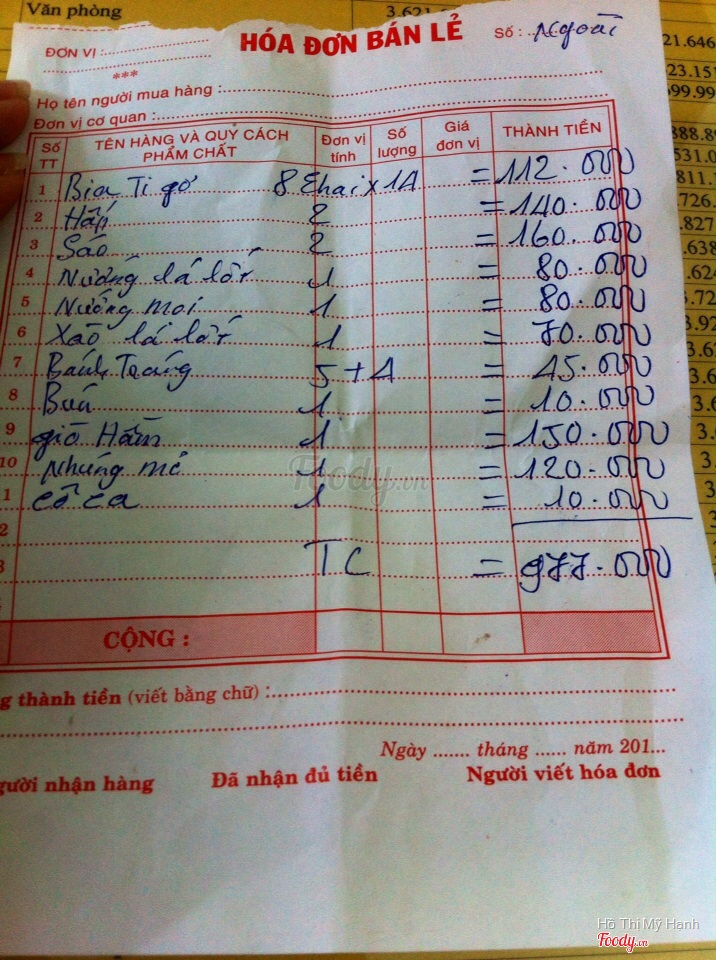 Văn phòng 3.621
HÓA ĐƠN BÁN LẺ
Số : Ngoài
ĐƠN VỊ :
***
Họ tên người mua hàng :
Đơn vị cơ quan :
Số TT TÊN HÀNG VÀ QUY CÁCH PHẨM CHẤT Đơn vị tính Số lượng Giá đơn vị THÀNH TIỀN
1 Bia Ti gơ 8 chai x 14 = 112.000
2 Hấp 2 = 140.000
3 Sáo 2 = 160.000
4 Nướng lá lốt 1 = 80.000
5 Nướng mọi 1 = 80.000
6 Xào lá lốt 1 = 70.000
7 Bánh Tráng 5 + 4 = 45.000
8 Bún 1 = 10.000
9 giò Hầm 1 = 150.000
10 Nhúng mẻ 1 = 120.000
1 cô ca 1 = 10.000
2
3 TC = 977.000
CỘNG :
g thành tiền (viết bằng chữ) :
Ngày ....... tháng ...... năm 201...
gười nhận hàng Đã nhận đủ tiền Người viết hóa đơn
Foody.vn
Hồ Thị Mỹ Hạnh
Foody.vn